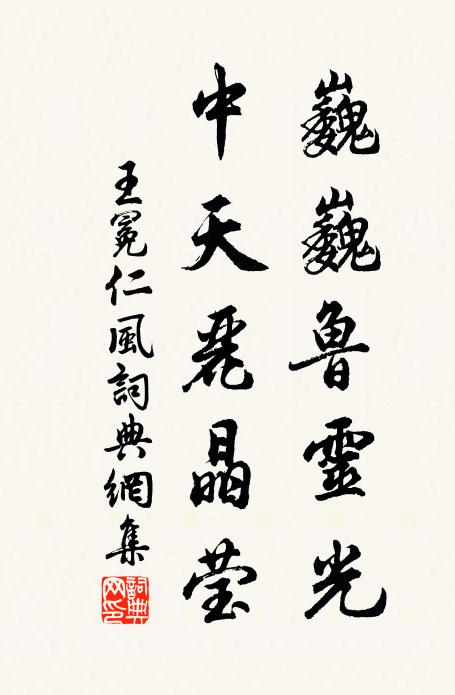 巍巍魯靈光
中天麗晶瑩
王冕仁風詞典網集
詞典
网印